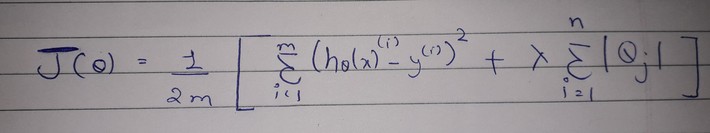 J(θ) = 1/2m [ Σ_{i=1}^{m} (hθ(x)^{(i)} - y^{(i)})^2 + λ Σ_{i=1}^{n} |θj| ]